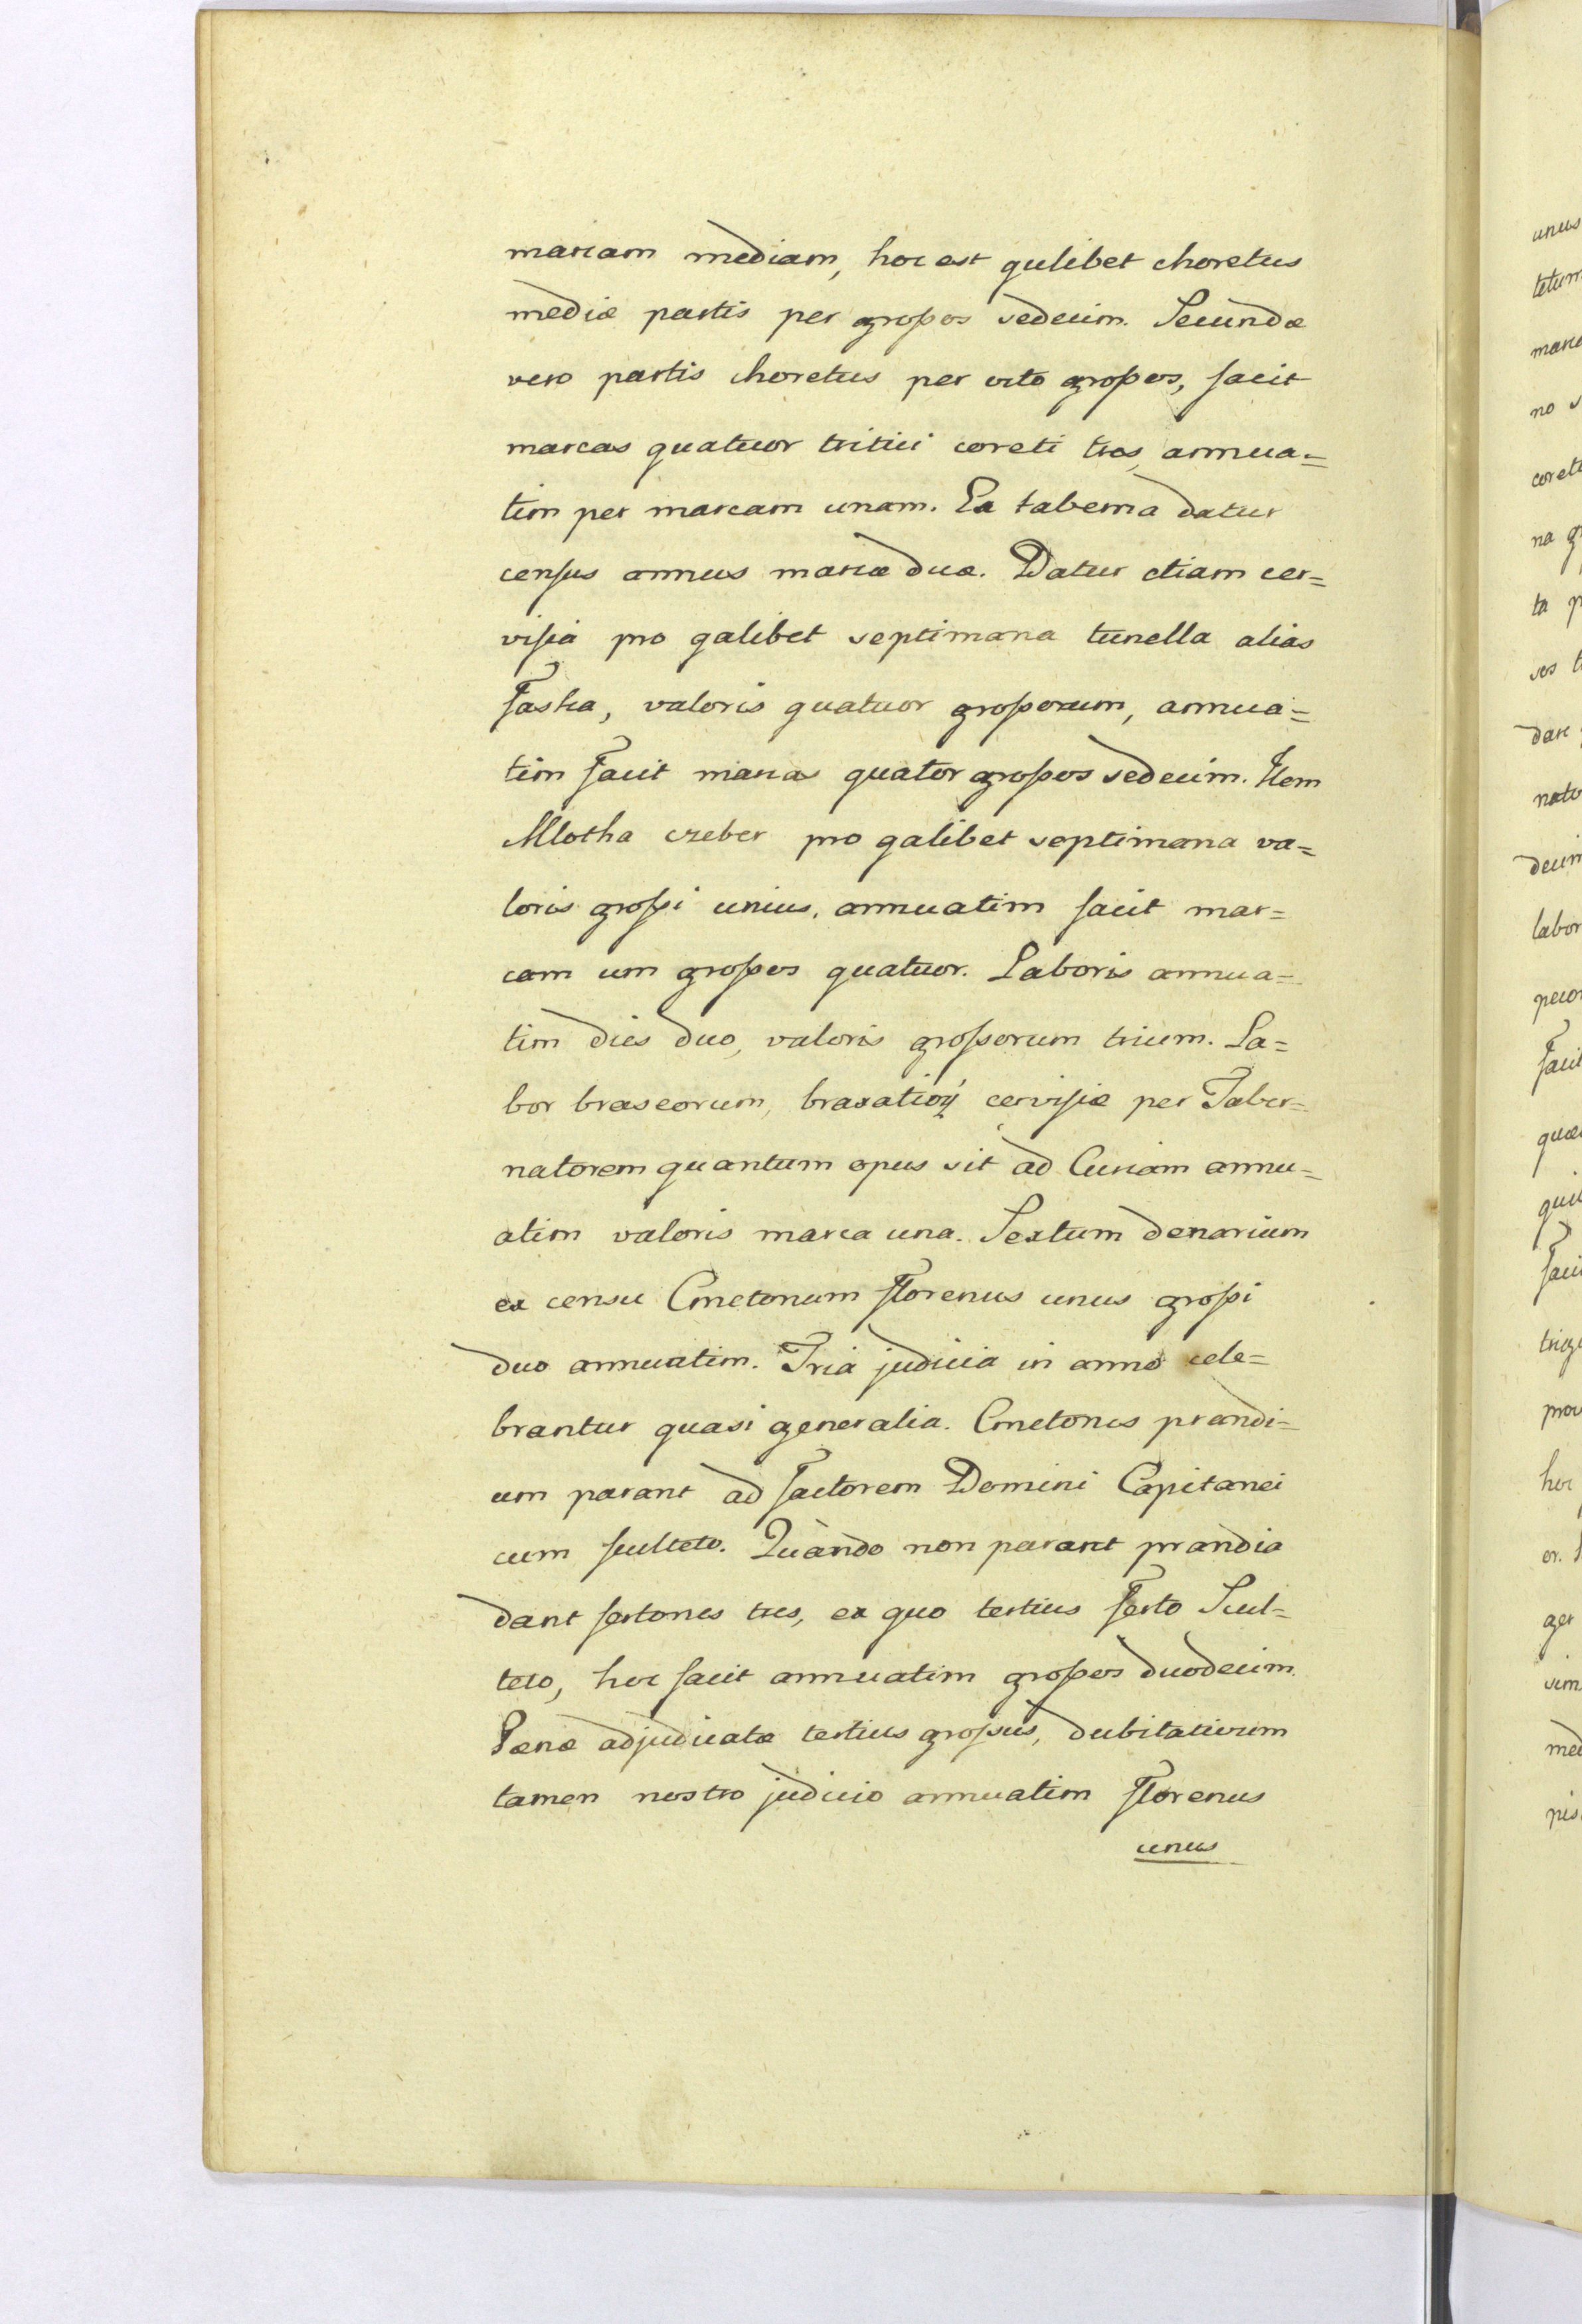 marcam mediam, hoc est qulibet choretus
mediæ partis per grossos sedecim. Secundæ
vero partis choretus per octo grossos, facit
marcas quatuor tritici coreti tres, annua=
tim per marcam unam. Ex taberna datur
census annuus marcæ duæ. Datur etiam cer=
visia pro qalibet septimana tunella alias
Faska, valoris quatuor grossorum, annua=
tim facit marcas quator grossos sedecim. Item
Mlotha czeber pro qalibet septimana va=
loris grossi unius, annuatim facit mar=
cam um grossos quatuor. Laboris annua=
tim dies duo, valoris grossorum trium. La=
bor braseorum, braxatioÿ cervisiæ per Taber=
natorem quantum opus sit ad Curiam annu=
atim valoris marca una. Sextum denarium
ex censu Cmetonum florenus unus grossi
duo annuatim. Tria judicia in anno cele=
brantur quasi generalia. Cmetones prandi=
um parant ad factorem Domini Capitanei
cum sculteto. Quando non parant prandia
dant fertones tres, ex quo tertius ferto Scul=
teto, hoc facit annuatim grossos duodecim.
Pænæ adjudicatæ tertius grossus, dubitativum
tamen nostro judicio annuatim florenus
unus
unus
tetum
no
na
ta
labor
facit
hoc